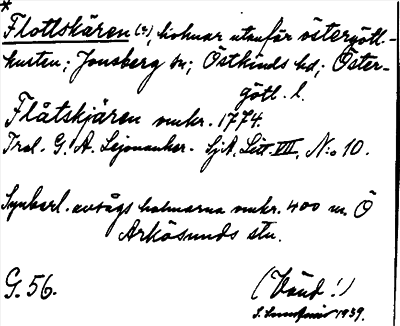 *
Flottskären (?), holmar utanför östergötl.-
kusten; Jonsberg sn; Östkinds hd; Öster-
götl. l.
Flåtskjären omkr. 1774.
Trol. G. A. Lejonanker. SjA, Litt. VII, N:o 10.
Synberl. avsågs holmarna omkr. 400 m Ö
Arkösunds stn.
G. 56.
(Vänd!)
1939.